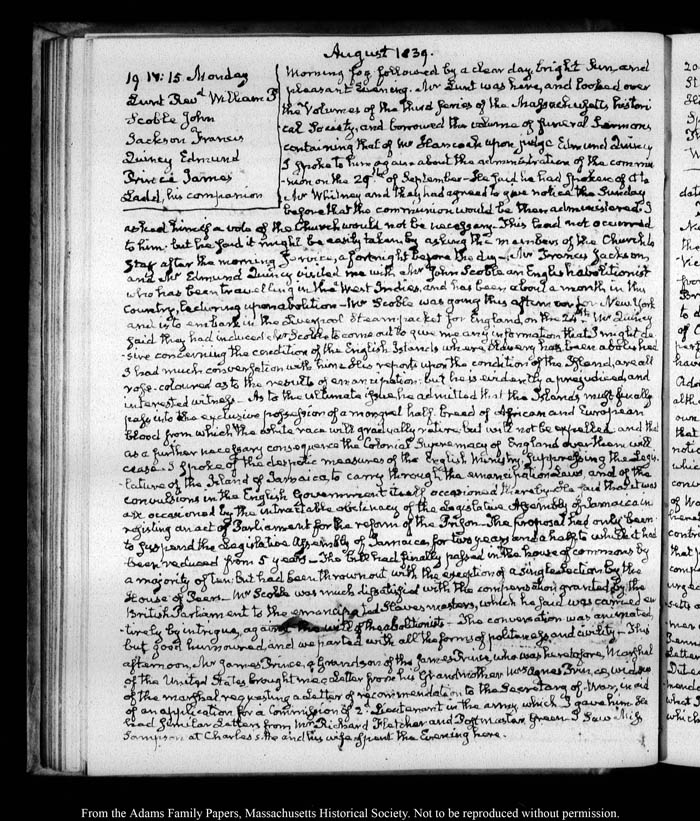 August 1839.
19. IV:15. Monday
Lunt Revd. William P
Scoble John
Jackson Francis
Quincy Edmund
Prince James
Ladd, his companion
Morning fog followed by a clear day, bright Sun, and
pleasant Evening. Mr Lunt was here, and looked over
the Volumes of the third series of the Massachusetts histori
cal Society, and borrowed the volume of funeral Sermons
containing that of Mr Hancock upon Judge Edmund Quincy
I spoke to him again about the administration of the commu
nion on the 29th of September. He said he had spoken of it to
Mr Whitney and they had agreed to give notice the Sunday
before that the communion would be then administered. I
asked him if a vote of the Church would not be necessary. This had not occurred
to him: but he said it might be easily taken by asking the members of the Church to
stay after the morning service, a fortnight before the day. Mr Francis Jackson
and Mr Edmund Quincy visited me with Mr John Scoble an English abolitionist
who has been travelling in the West Indies, and has been about a month in this
Country, lecturing upon abolition. Mr Scoble was going this afternoon for New York
and is to embark in the Liverpool Steam packet for England, on the 24th. Mr Quincy
said they had induced Mr Scoble to come out to give me any information that I might de
sire concerning the condition of the English Islands where Slavery has been abolished
I had much conversation with him. His reports upon the condition of the Island, are all
rose-coloured as to the results of emancipation: but he is evidently a prejudiced, and
interested witness. As to the ultimate issue, he admitted that the Islands must finally
pass into the exclusive possession of a mongrel half breed of African and European
blood from which the white race will gradually retire, but will not be expelled. and that
as a further necessary consequence the Colonial Supremacy of England over them will
cease. I spoke of the despotic measures of the English Ministry, suppressing the Legis
lature of the Island of Jamaica, to carry through the emancipation Laws, and of the
convulsions in the English Government itself occasioned thereby. He said that it was
all occasioned by the intractable obstinacy of the Legislative Assembly of Jamaica in
resisting an act of Parliament for the reform of the Prison. The proposal had only been
to suspend the Legislative Assembly of Jamaica for two years and a half, to which it had
been reduced from 5 years. The bill had finally passed in the house of commons by
a majority of ten: but had been thrown out with the exception of a single section by the
House of Peers. Mr Scoble was much dissatisfied with the compensation granted by the
British Parliament to the emancipated Slave masters, which he said was carried en
tirely by intrigue, against the will of the abolitionists. The conversation was animated,
but good humoured, and we parted with all the forms of politeness and civility. This
afternoon, Mr James Prince, a Grandson of the James Prince, who was heretofore, Marshal
of the United States brought me a Letter from his Grandmother Mrs Agnes Prince, widow
of the marshal requesting a Letter of recommendation to the Secretary of War, in aid
of an application for a Commission of 2d. Lieutenant in the army, which I gave him. He
had similar Letters from Mr Richard Fletcher and Postmaster Green. I saw Miss
Sampson at Charles's. He and his wife spent the Evening here.
From the Adams Family Papers, Massachusetts Historical Society. Not to be reproduced without permission.